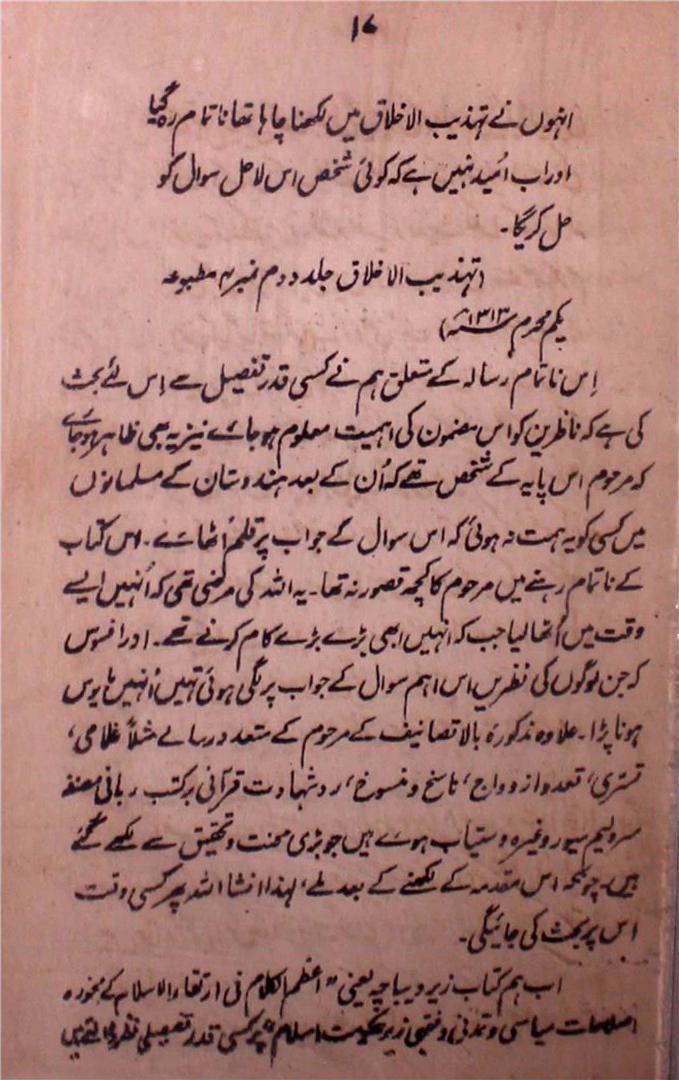 ۱۷
انہوں نے تہذیب الاخلاق میں لکھنا چاہا تھا ناتمام رہ گیا
اور اب اُمید نہیں ہے کہ کوئی شخص اس لاحل سوال کو
حل کریگا۔
(تہذیب الاخلاق جلد دوم نمبر ۴ مطبوعہ
یکم محرم ۱۳۱۳ھ)
اِس ناتمام رسالہ کے متعلق ہم نے کسی قدر تفصیل سے اِس لئے بحث
کی ہے کہ ناظرین کو اس مضمون کی اہمیت معلوم ہو جاے نیز یہ بھی ظاہر ہو جاے
کہ مرحوم اس پایہ کے شخص تھے کہ اُن کے بعد ہندوستان کے مسلمانوں
میں کسی کو یہ ہمت نہ ہوئی کہ اس سوال کے جواب پر قلم اُٹھاے۔ اس کتاب
کے ناتمام رہنے میں مرحوم کا کچھ قصور نہ تھا۔ یہ اللہ کی مرضی تھی کہ اُنہیں ایسے
وقت میں اُٹھا لیا جب کہ انہیں ابھی بڑے بڑے کام کرنے تھے۔ اور افسوس
کہ جن لوگوں کی نظریں اس اہم سوال کے جواب پر لگی ہوئی تہیں اُنہیں مایوس
ہونا پڑا۔ علاوہ مذکورۂ بالا تصانیف کے مرحوم کے متعدد رسالے مثلاً غلامی،
تسّری، تعدد ازدواج، ناسخ و منسوخ، رد شہادت قرآنی بر کتب ربانی مصنفہ
سر ولیم میور وغیرہ دستیاب ہوے ہیں جو بڑی محنت و تحقیق سے لکھے گئے
ہیں۔ چونکہ اس مقدمہ کے لکھنے کے بعد ملے، لہذا انشا اللہ پھر کسی وقت
اس پر بحث کی جائیگی۔
اب ہم کتاب زیر دیباچہ یعنی "اعظم الکلام فی ارتقاء الاسلام کے مجوزہ
اصلاحات سیاسی و تمدنی و فقہی زیر حکومت اسلام" پر کسی قدر تفصیلی نظر ڈالتے ہیں